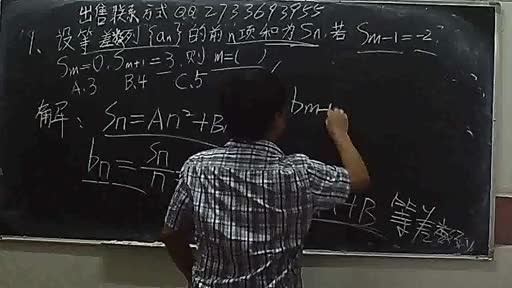 出售联系方式QQ2933693955
1、设等差数列{an}的前n项和为Sn.若 Sm-1=-2,
Sm=0.Sm+1=3.则 m=( )
A.3 B.4 C.5
解: Sn=An²+B
bm-
bn=Sn/n
+B 等差数列